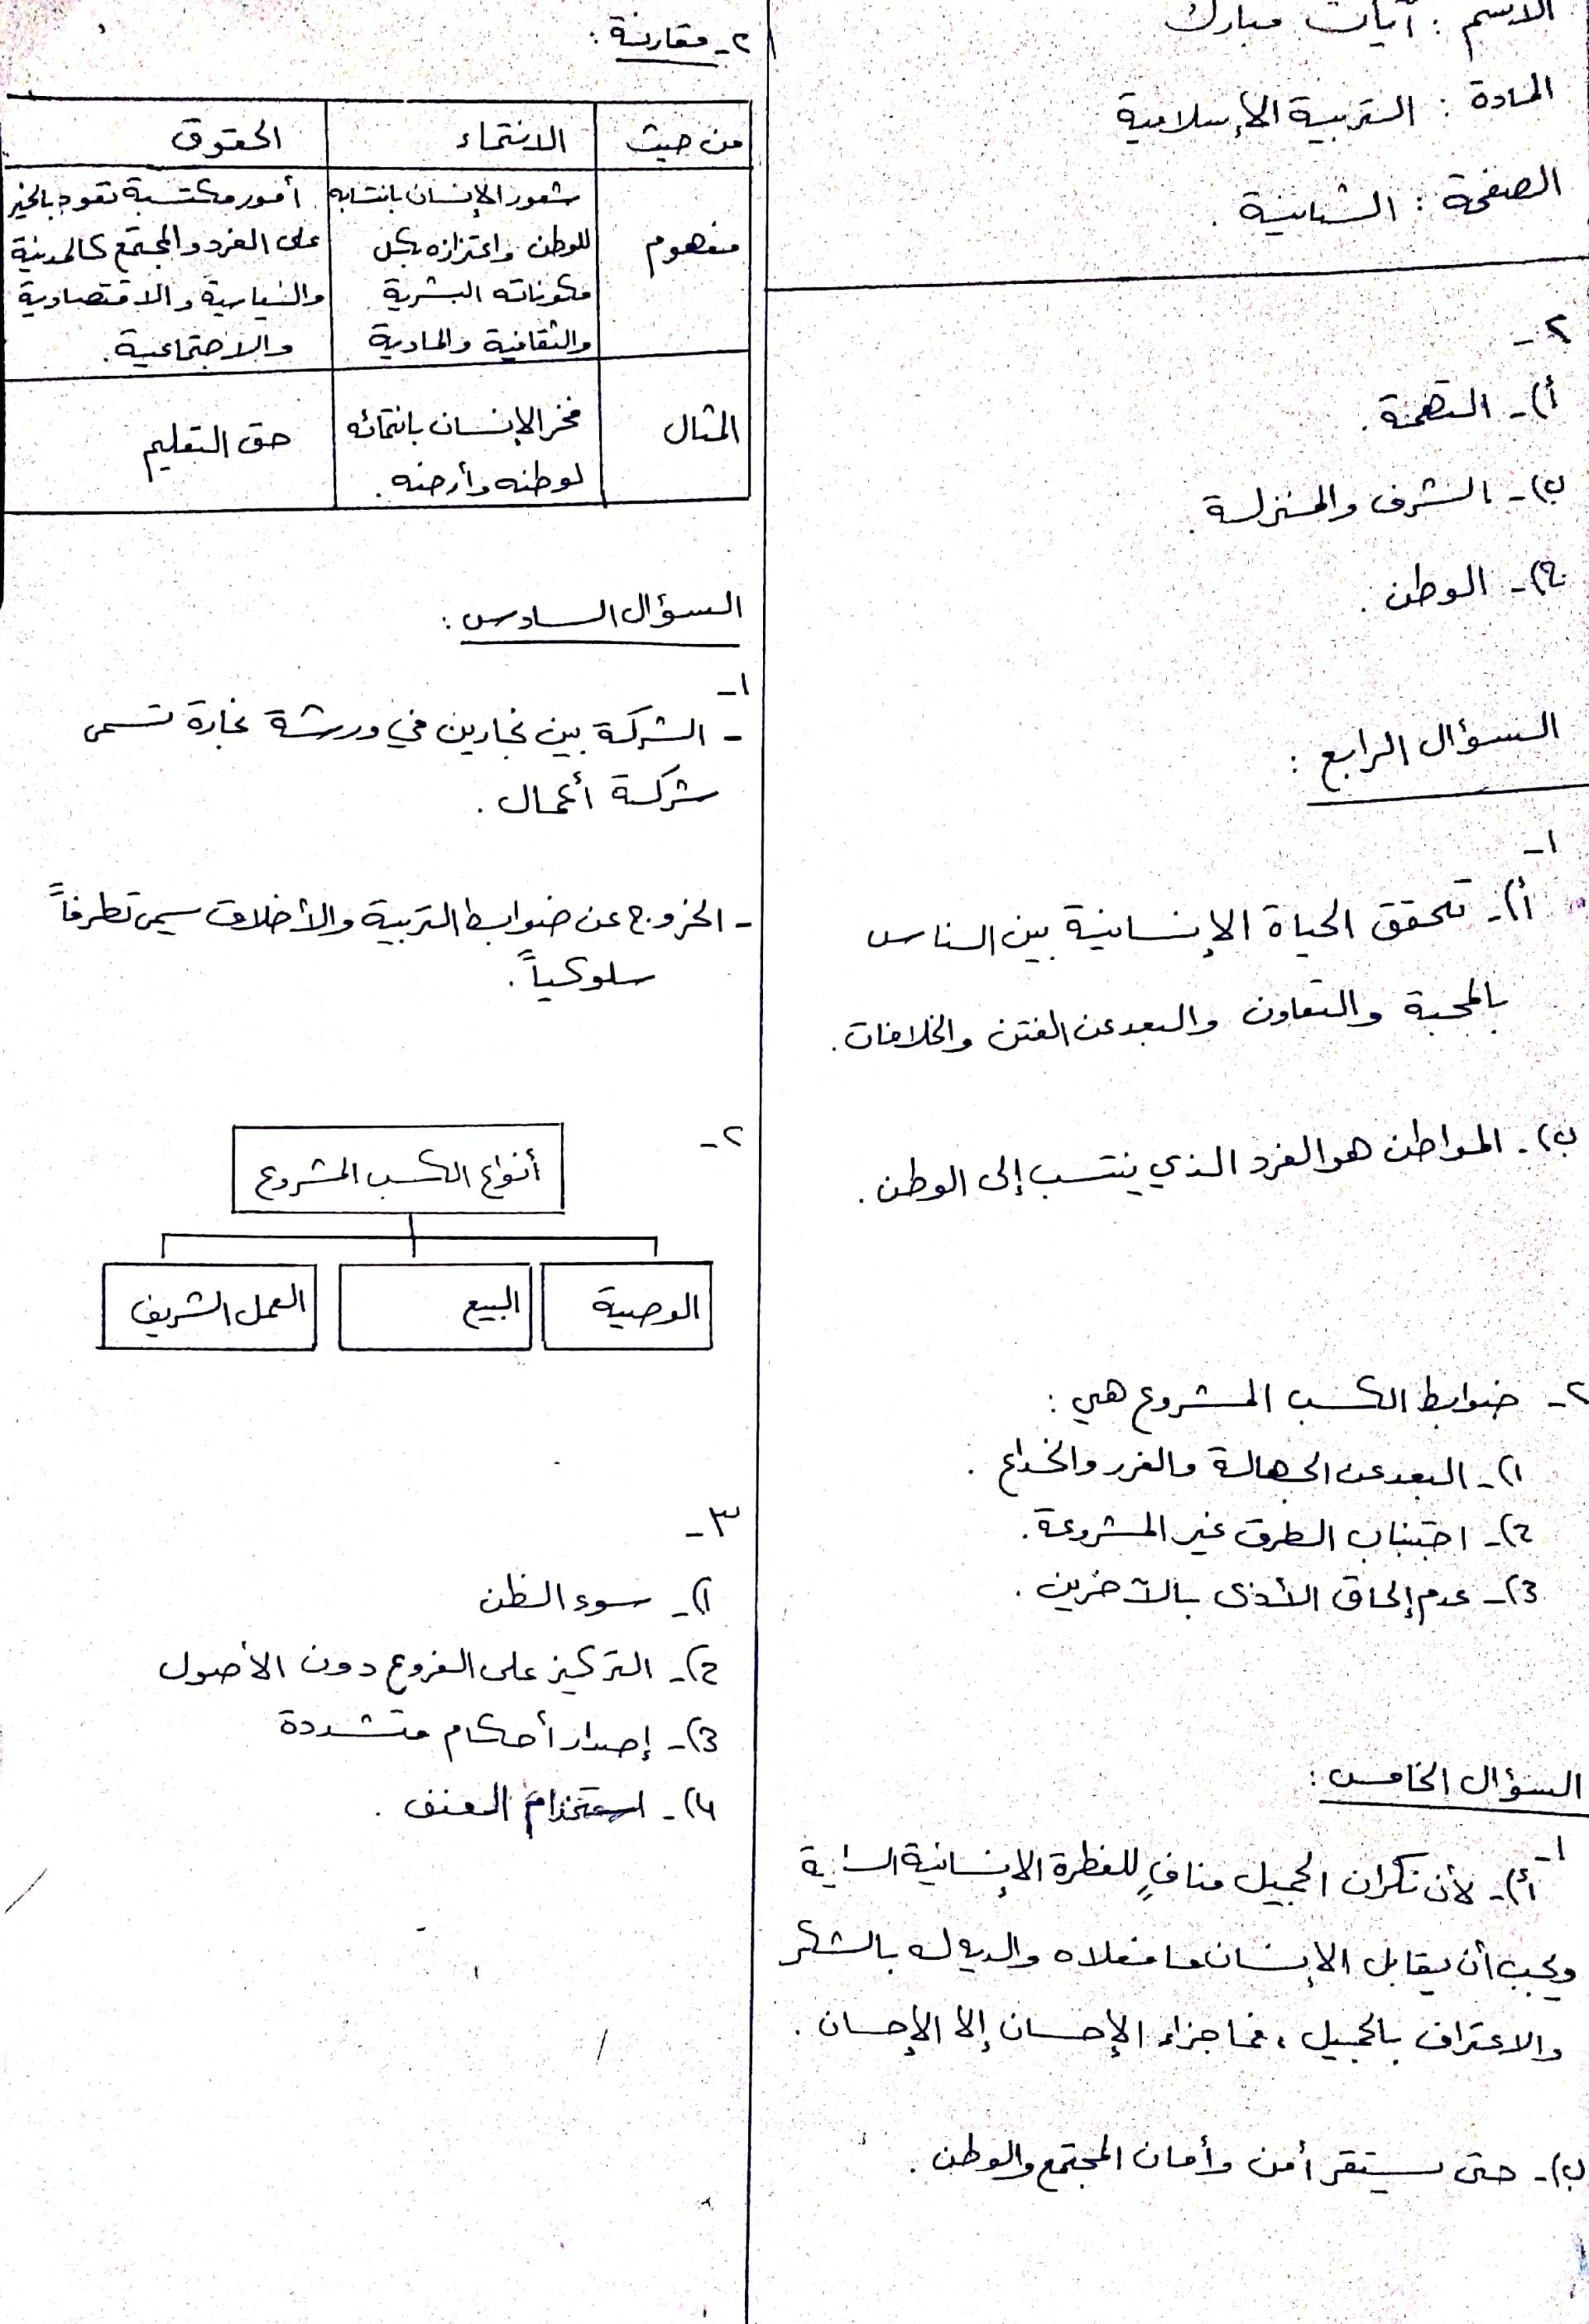 الاسم : آيات مبارك
المادة : التربية الإسلامية
الصفحة : الثانية .
٢-
أ)- التهمة .
ب)- الشرف والمنزلة .
ج)- الوطن .
السؤال الرابع :
١-
أ)- تحقق الحياة الإنسانية بين الناس
بالمحبة والتعاون والبعد عن الفتن والخلافات .
ب)- المواطن هو الفرد الذي ينتسب إلى الوطن .
٢- ضوابط الكسب المشروع هي :
1)- البعد عن الجهالة والغرر والخداع .
2)- اجتناب الطرق غير المشروعة .
3)- عدم إلحاق الأذى بالآخرين .
السؤال الخامس :
١-
أ)- لأن نكران الجميل منافٍ للفطرة الإنسانية
ويجب أن يقابل الإنسان ما فعلاه والديه له بالشكر
والاعتراف بالجميل ، فما جزاء الإحسان إلا الإحسان .
ب)- حتى يستقر أمن وأمان المجتمع والوطن .
٢- مقارنة :
من حيث الانتماء الحقوق
مفهوم
شعور الإنسان بانتسابه
للوطن واعتزازه بكل
مكوناته البشرية
والثقافية والمادية
أمور مكتسبة تعود بالخير
على الفرد والمجتمع كالمدنية
والسياسية والاقتصادية
والاجتماعية .
المثال
فخر الإنسان بانتمائه
لوطنه وأرضه .
حق التعليم
السؤال السادس :
١-
- الشركة بين نجارين في ورشة نجارة تسمى
شركة أعمال .
- الخروج عن ضوابط التربية والأخلاق سيمى تطرفاً
سلوكياً .
٢-
أنواع الكسب المشروع
الوصية البيع العمل الشريف
٣-
1)- سوء الظن
2)- التركيز على الفروع دون الأصول
3)- إصدار أحكام متشددة
4)- استخدام العنف .